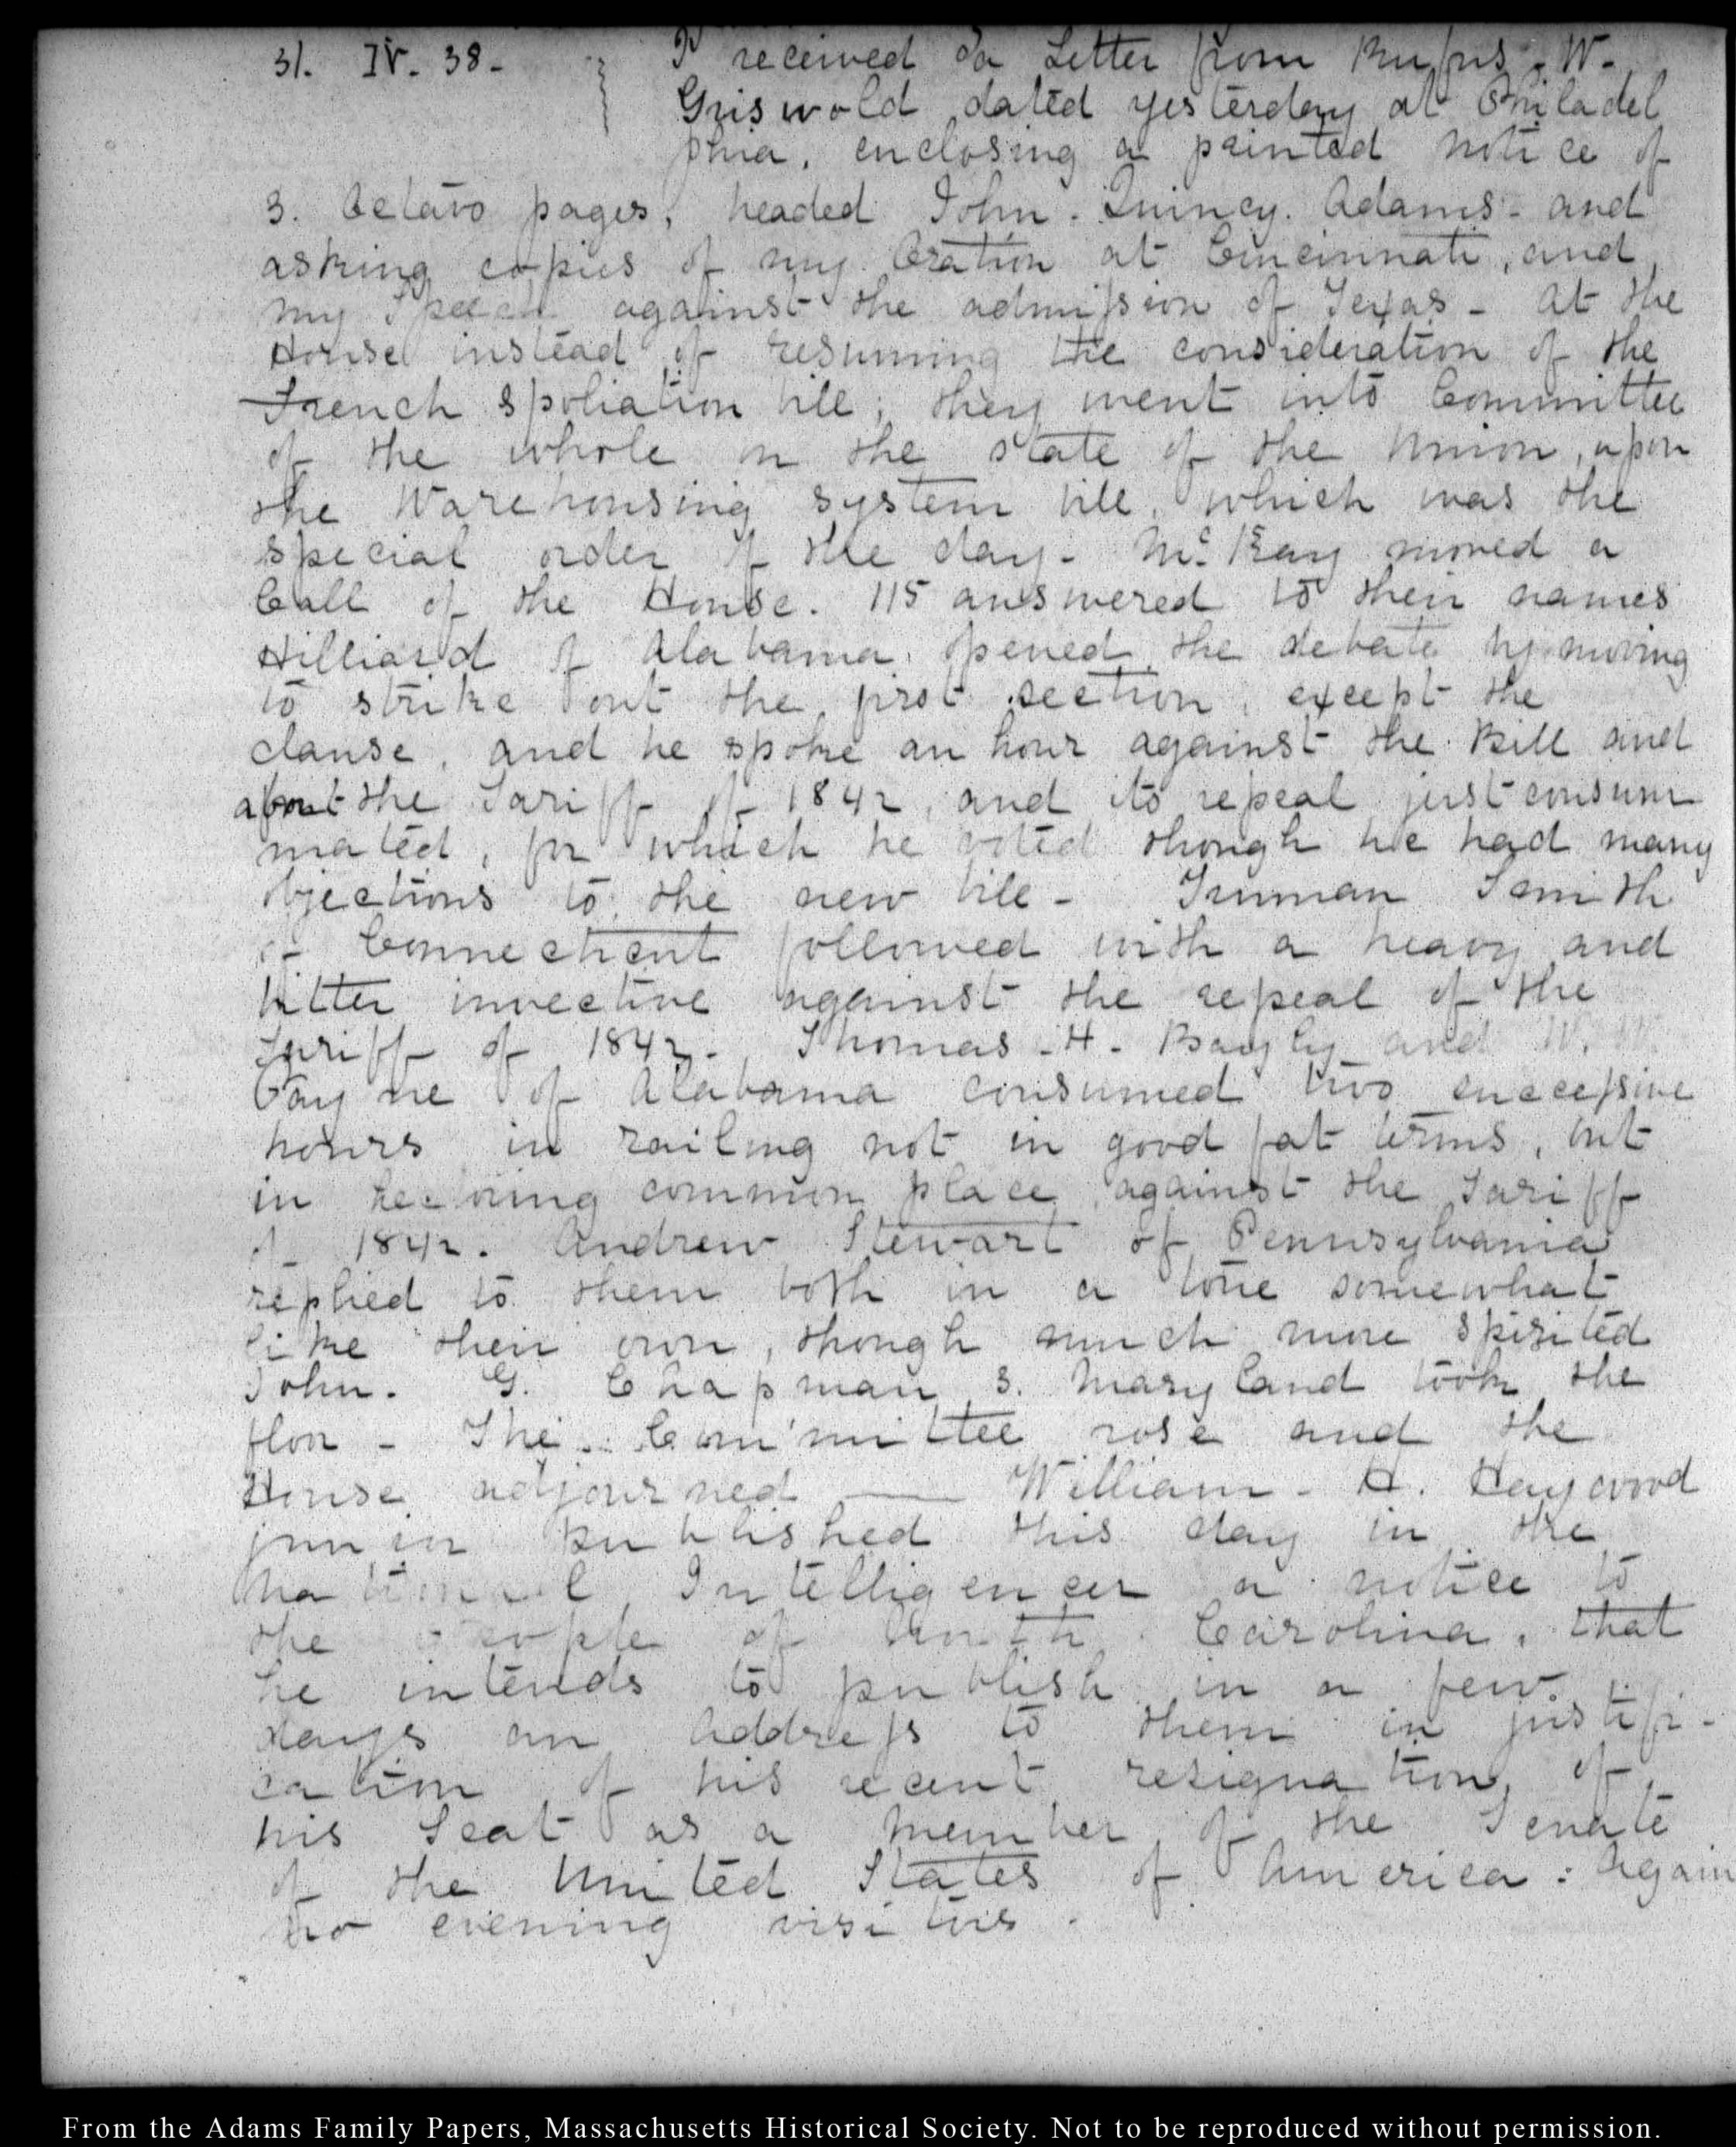 31. IV. 38-
I received a Letter from Rufus. W.
Griswold dated yesterday at Philadel
phia, enclosing a printed notice of
3. Octavo pages, headed John. Quincy. Adams - and
asking copies of my Oration at Cincinnati, and
my Speech against the admission of Texas - At the
House instead of resuming the consideration of the
French spoliation bill; they went into Committee
of the whole on the state of the Union, upon
the Warehousing system bill, which was the
special order of the day. Mc. Kay moved a
Call of the House. 115 answered to their names
Hilliard of Alabama, opened the debate by moving
to strike out the first section, except the
clause, and he spoke an hour against the Bill and
about the Tariff of 1842, and its repeal just consum
mated, for which he voted though he had many
objections to the new bill - Truman Smith
of Connecticut followed with a heavy and
bitter invective against the repeal of the
Tariff of 1842. Thomas. H. Bayly and W. W.
Payne of Alabama consumed two successive
hours in railing not in good set terms, but
in common place against the Tariff
of 1842. Andrew Stewart of Pennsylvania
replied to them both in a tone somewhat
like their own, though much more spirited
John. G. Chapman 3. Maryland took the
floor - The Committee rose and the
House adjourned — William. H. Haywood
junior published this day in the
National Intelligencer a notice to
the people of North Carolina, that
he intends to publish in a few
days an Address to them in justifi-
cation of his recent resignation, of
his Seat as a member of the Senate
of the United States of America: Again
no evening visitors.
From the Adams Family Papers, Massachusetts Historical Society. Not to be reproduced without permission.